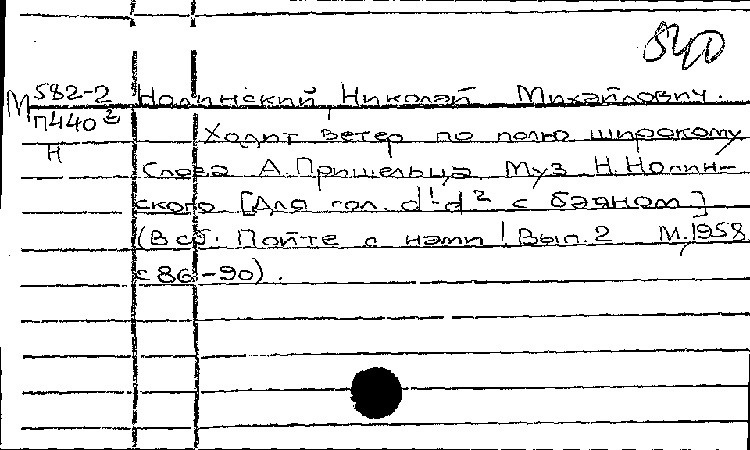 М 582-2
П440²
Н
Нолинский, Николай Михайлович.
Ходит ветер по полю широкому
Слова А. Пришельца Муз Н. Нолин-
ского [Для гол. d¹-d² с баяном]
(В сб: Пойте с нами! Вып. 2 М, 1958
с 86-90).